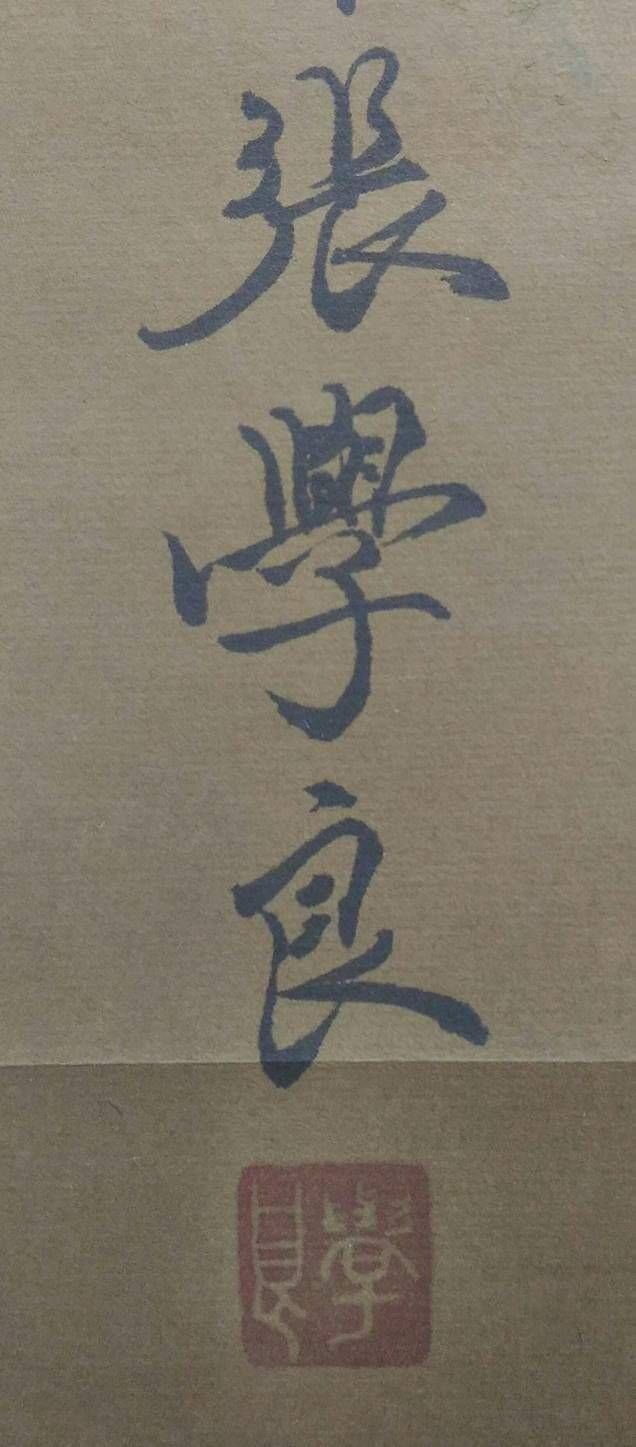 張學良
學良